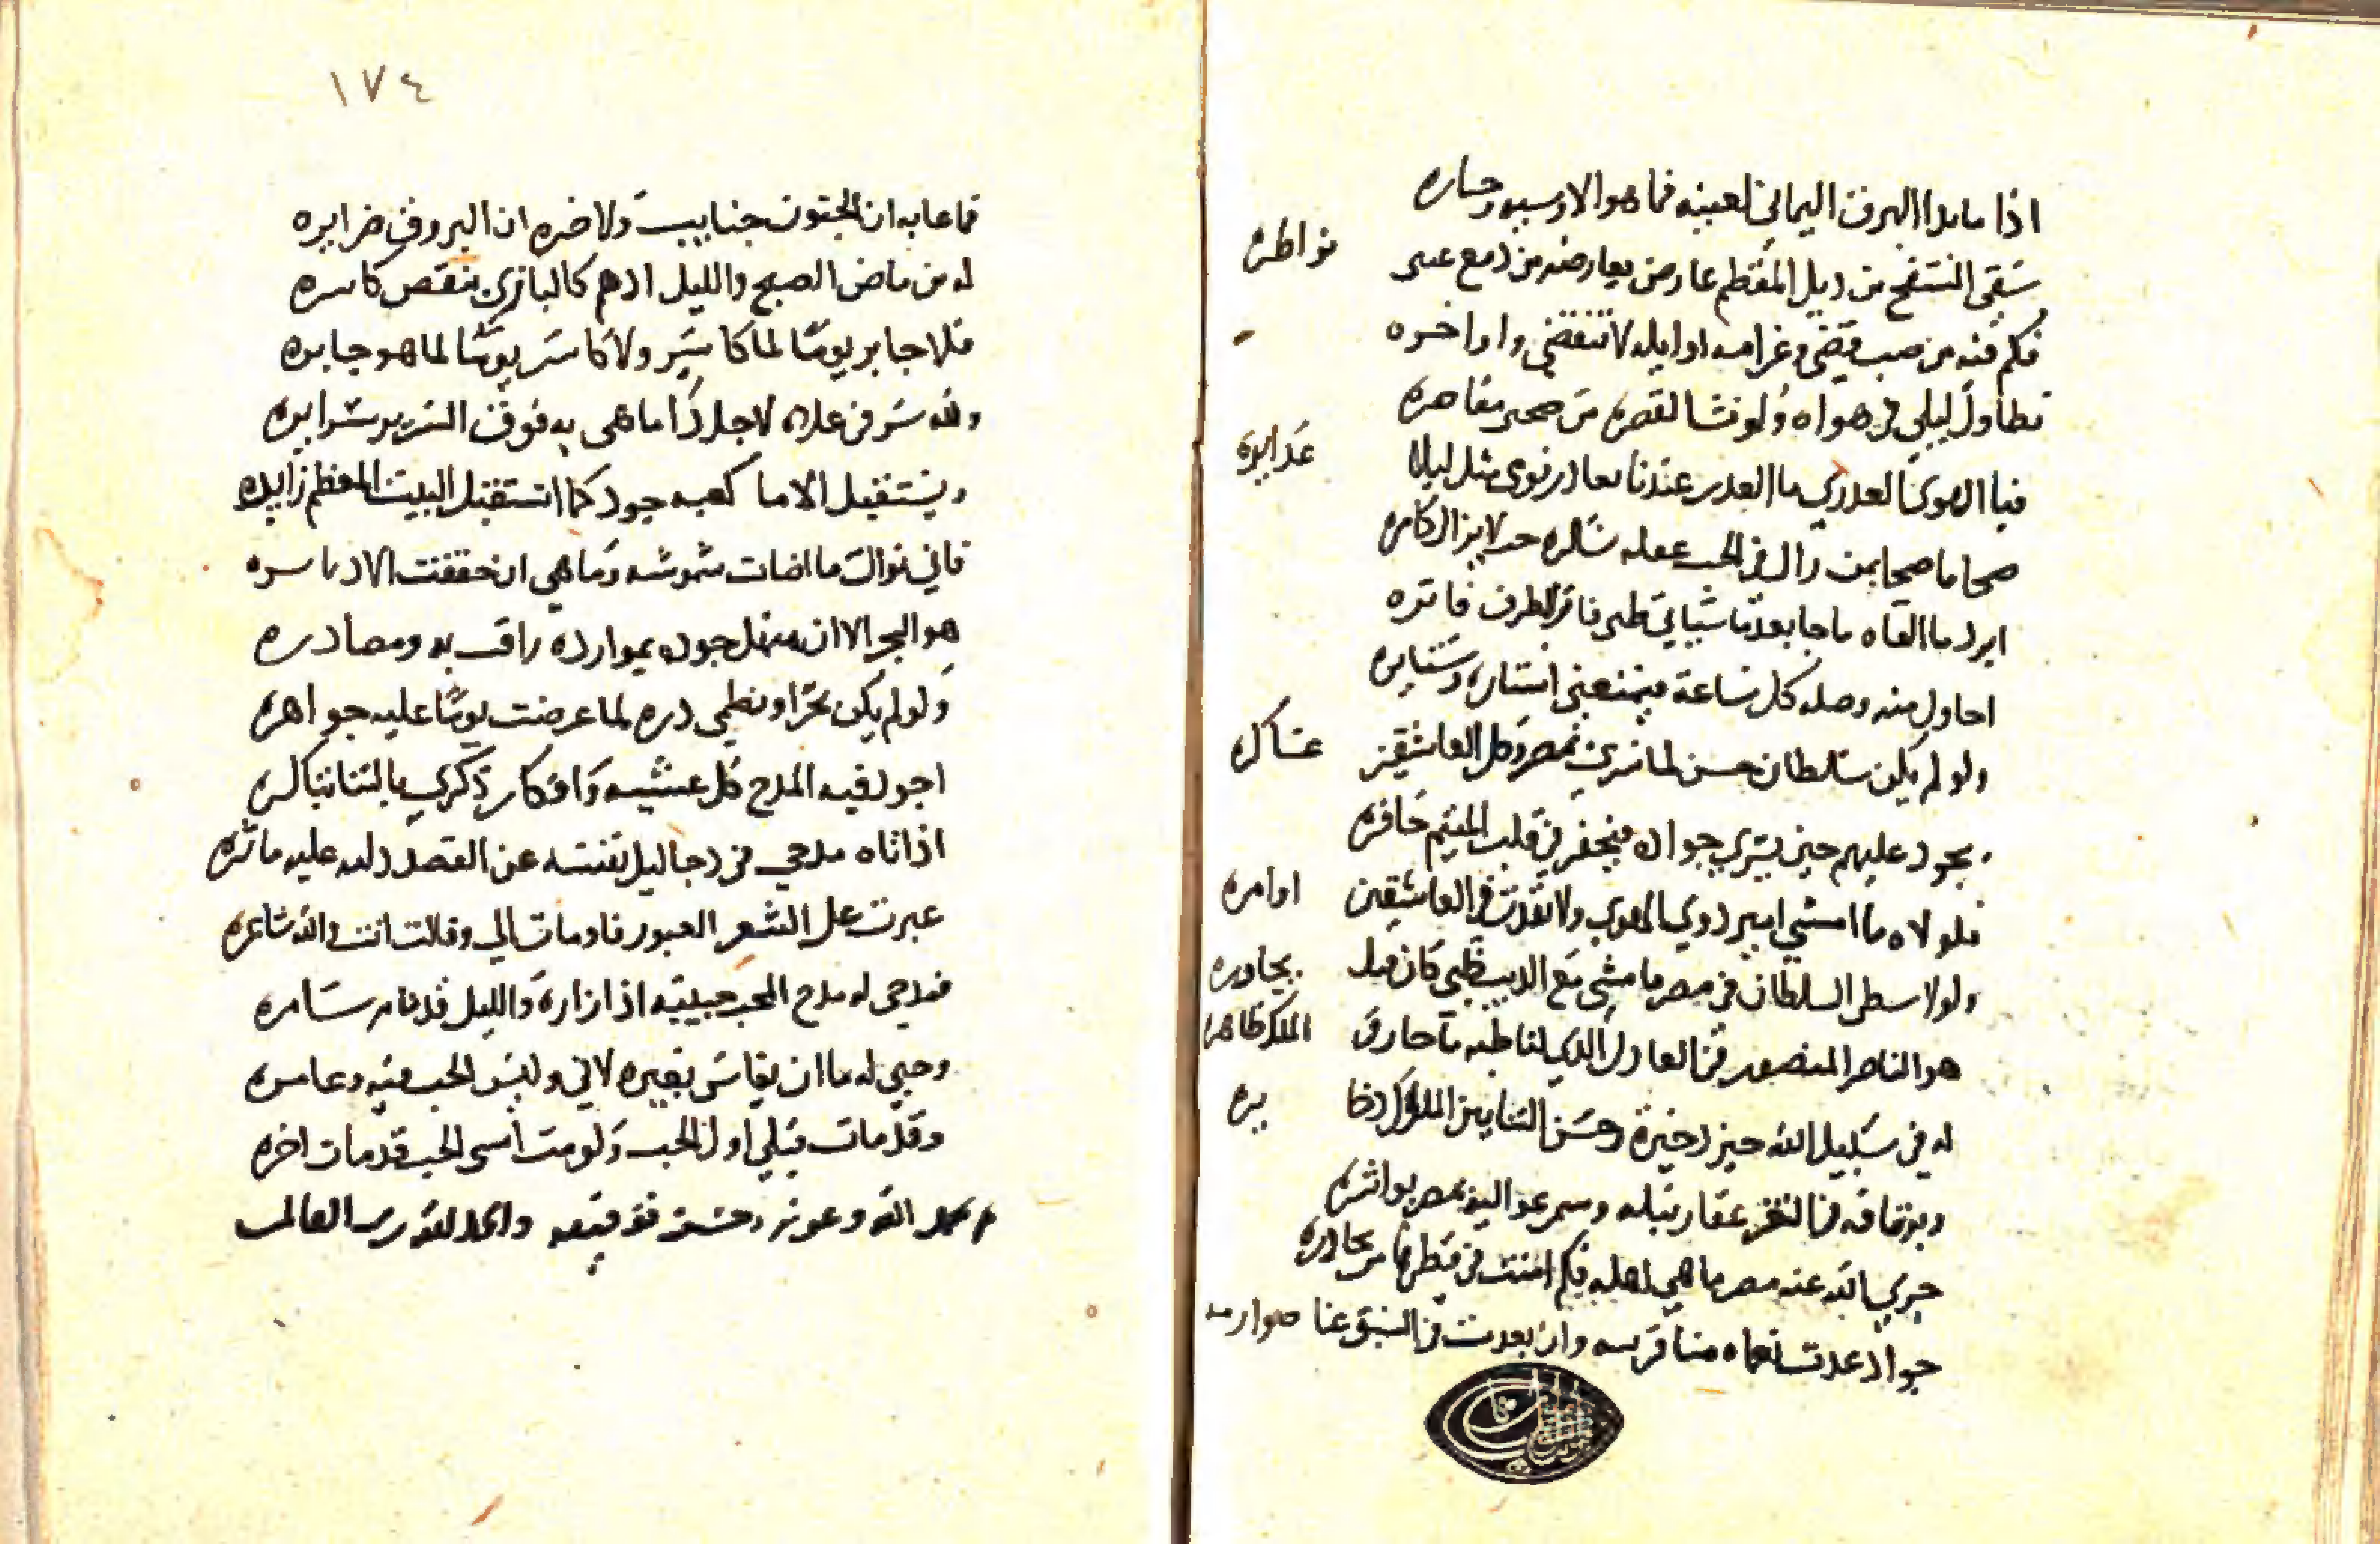 اذا ما بدا البرق اليماني لعينه فما هو الا وحساره
سقى السفح من ذيل المقطم عارض يعارضه من دمع عيني نواظره
فكم فيه من صب قضى وغرامه اوايله لا تنقضي واواخره
تطاول ليلي في هواه ولو نشا لقصره من صحبي مقاصره
فيا الهوى العذري ما العذر عندنا نوى مثل ليلا غدايره
صحا ما صحا من زال في الحب عقله
ابرد ما القاه ما جا بعدما شبابي فاتر الطرف فاتره
احاول منه وصله كل ساعة فيمنعني استاره وستايره
ولو لم يكن سلطان حسن لما سرى بمصر وكل العاشقين عساكره
يجود عليهم حين يسري جواده فيحفر في قلب المتيم حافره
فلولاه ما امشي اسير ذوي الهوى ولا نفذت في العاشقين اوامره
ولولا سطى السلطان في مصر ما مشى مع الديب ظبي كان قبل يحاذره
هو الناصر المنصور في العادل الذي لنا طبه ما حاز في الملك ظاهره
له في سبيل الله خير ذخيرة وحسن الثنا بين الملوك ذخايره
وبرقافه في الثغر عقار نبله وسمر عواليه بمصر بواتره
جزى الله عنه مصر ما هي اهله فكم امنت في قطرها من يحاذره
جواد غدت نعماه منا قريبه وان بعدت في السبق عنا صوارمه
١٧٤
فما عابه ان الجتون جنايب ولا ضره ان البروق ضرايره
له من ماض الصبح والليل ادهم كالبازي ينقض كاسره
فلا جابر يوما لما كاسر ولا كاسر يوما لما هو جابره
ولله سر في علاه لاجل ذا ما همى به فوق السرير سرايره
ويستقبل الاما كعبه جود كما استقبل البيت المعظم زايره
فاني نوال ما اضات شموسه وما هي ان حققت الا اساسره
هو البحر الا ان منهل جوده بموارده راقت به ومصادره
ولو لم يكن بحرا ونظمي دره لما عرضت يوما عليه جواهره
اجود فيه المدح كل عشيه وافكار ذكري بالثنا تباكره
اذا تاه مدحي في دجا ليل نقسه عن القصد دلته عليه ماثره
عبرت على الشعر العبور فاومات الي وقالت انت والله شاعره
فمدحي له مدح المحب حبيبه اذا زاره والليل قد نام سامره
وحبي له ما ان يقاس بغيره لاني وليس الحب فيه وعامره
وقد مات قبلي اول الحب ولو مت امسى الحب قد مات اخره
بحمد الله وعونه وحسن توفيقه والحمد لله رب العالمين